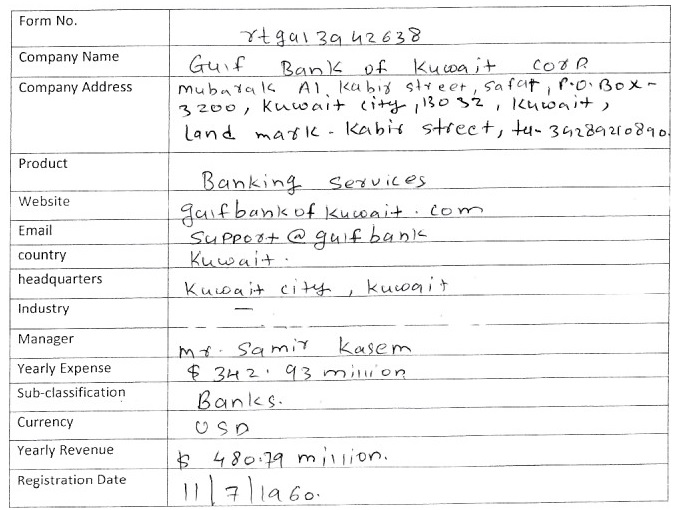 Form No. rtgal3942638
Company Name Gulf Bank of Kuwait corp
Company Address Mubarak Al. Kabir street, Safat, P.O. Box-
3200, Kuwait city, 13032, Kuwait,
Land mark - Kabir street, tel- 39289210890.
Product Banking Services
Website gulfbankofkuwait.com
Email Support@gulfbank
country Kuwait.
headquarters Kuwait city, Kuwait
Industry —
Manager Mr. Samir Kasem
Yearly Expense $ 342.93 million
Sub-classification Banks.
Currency USD
Yearly Revenue $ 480.79 million.
Registration Date 11/7/1960.